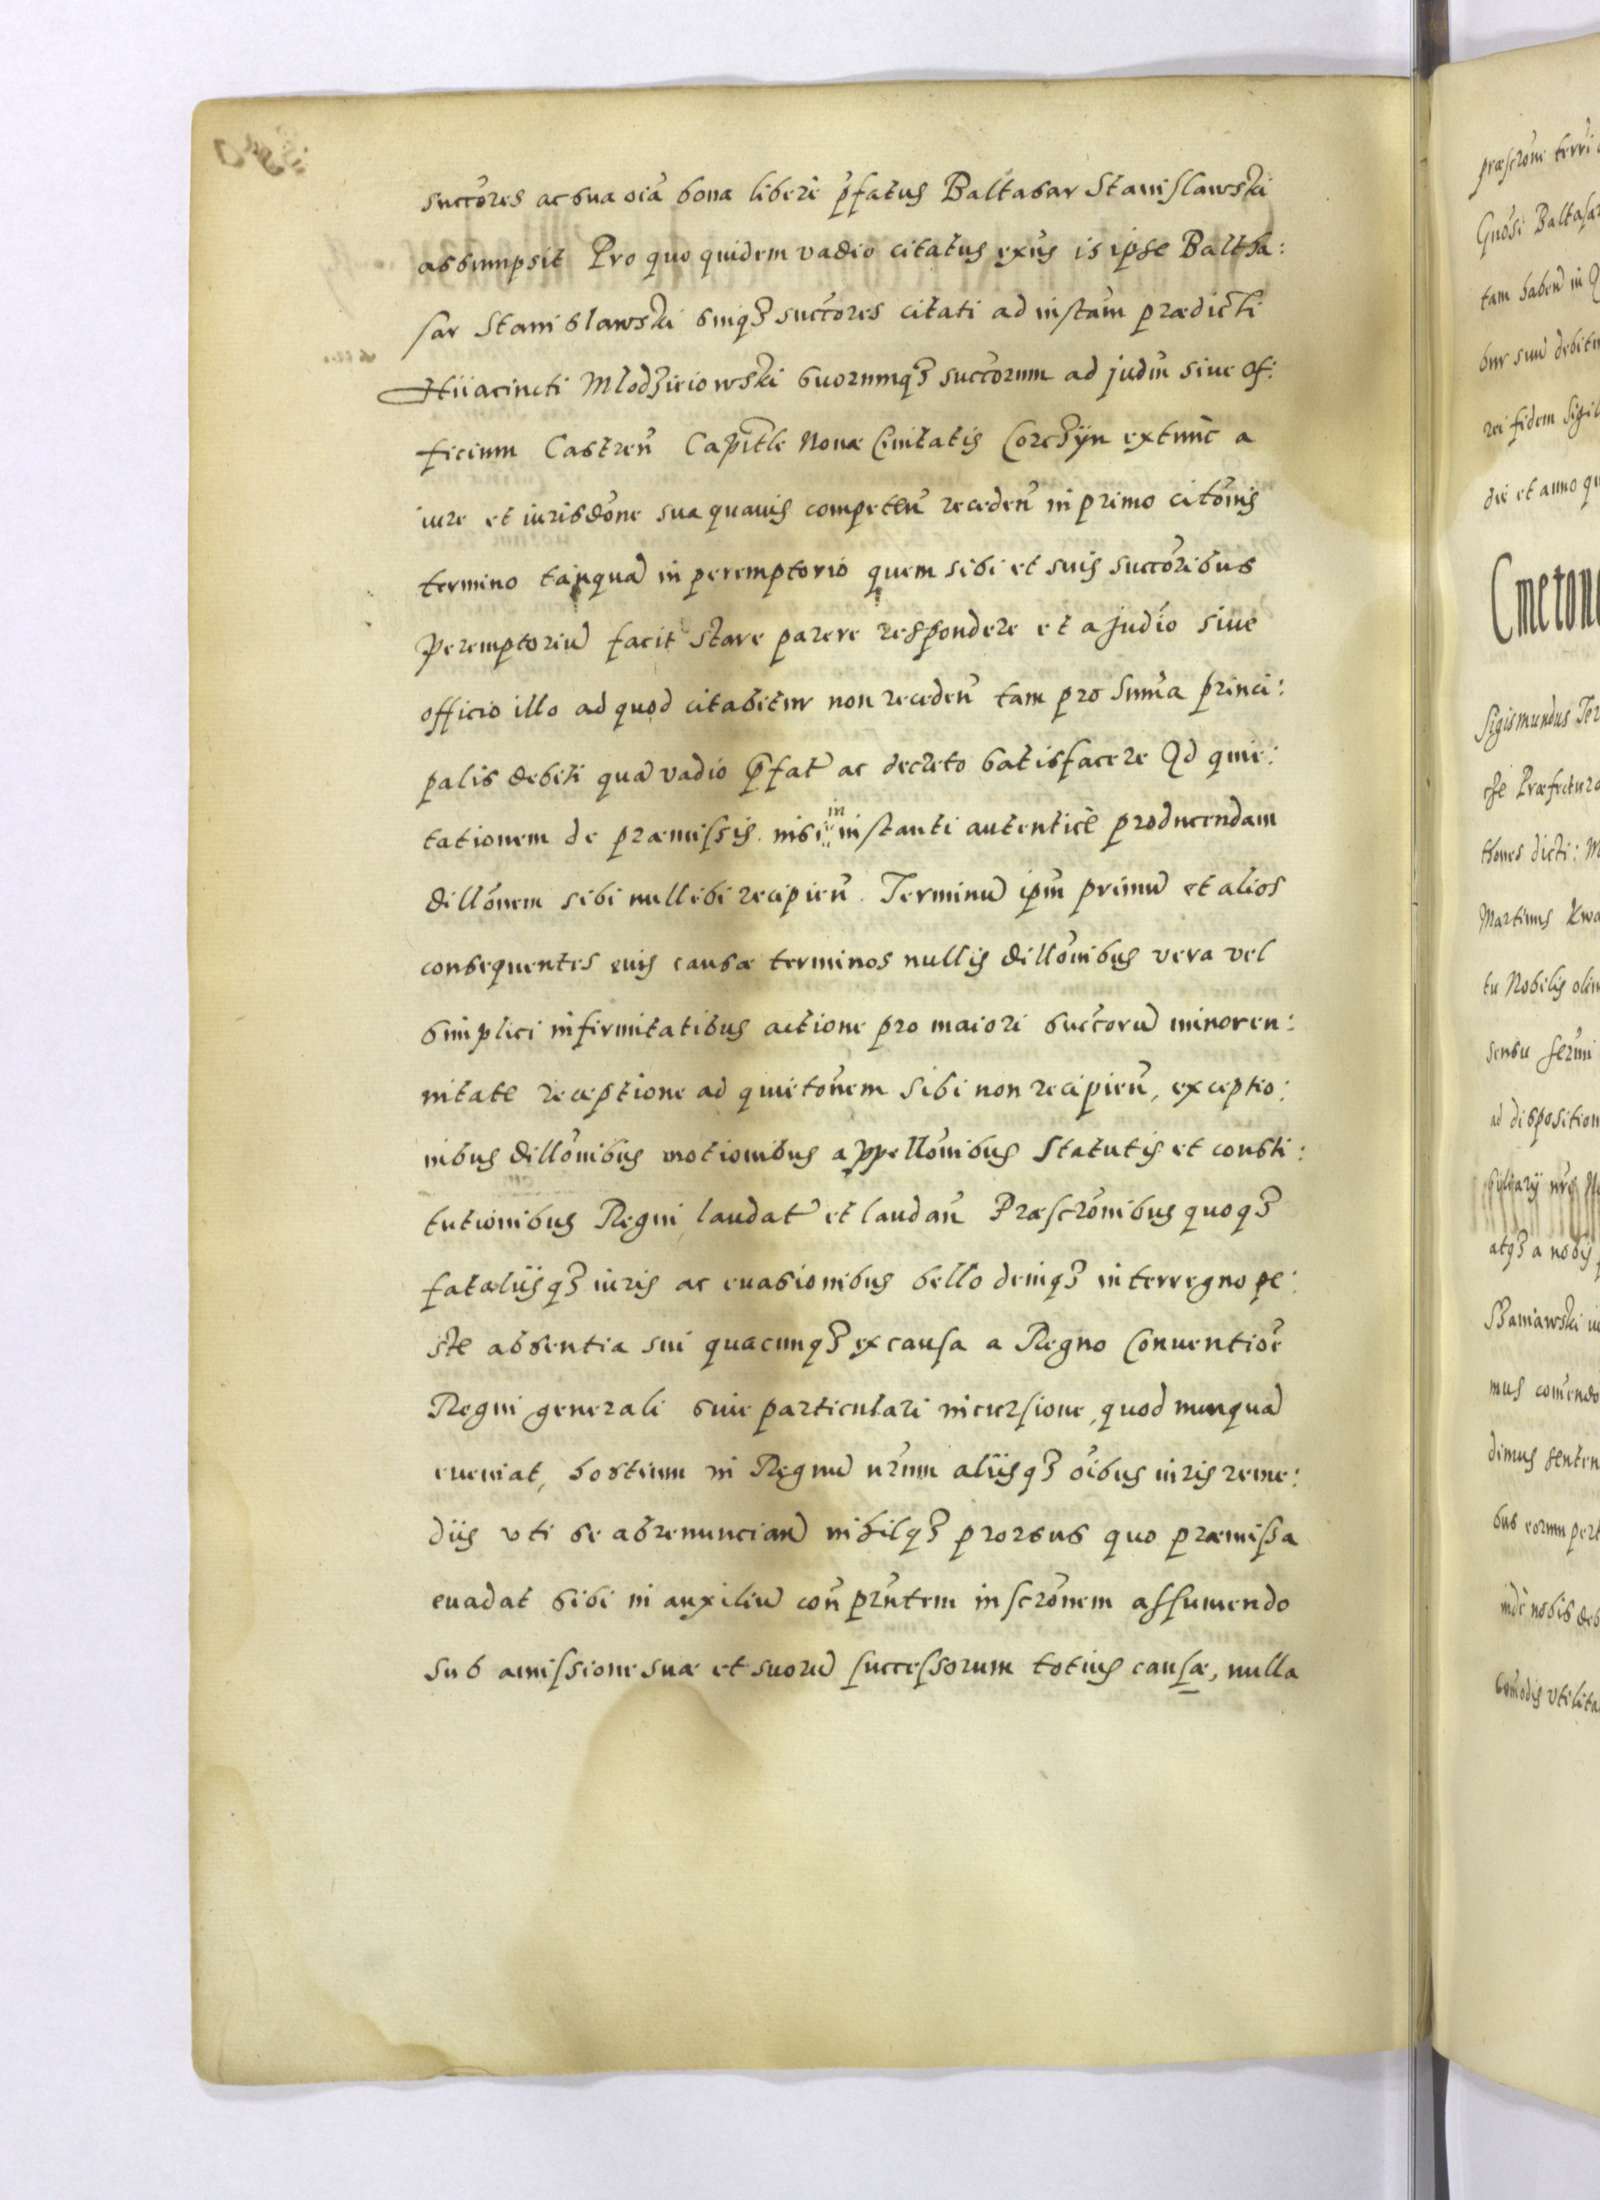 succőres ac sua oiã bona liberè p̃fatus Baltasar Stanislawski
assumpsit Pro quo quidem vadio citatus exñs is ipse Baltha:
sar Stanislawski suiqʒ succőres citati ad instañ prædicti
Hiiacincti Mlodzieiowski suorumqʒ succőrum ad judiu sive Of:
ficium Castreñ Capitlẽ Novæ Civitatis Corczÿn extunc a
iure et iurisdőne sua quavis competeñ recedeñ in primo citőnis
termino tanquã in peremptorio quem sibi et suis succőribus
peremptoriũ facit stare parere respondere et a judio sive
officio illo ad quod citabitur non recedeñ tam pro sum̃a princi:
palis debiti quã vadio p̃fat̃ ac decreto satisfacere Qd quie:
tationem de præmissis nisi in instanti autenticè producendam
dillőnem sibi nullibi recipieñ. Terminũ ipm̃ primũ et alios
consequentes eius causæ terminos nullis dillőnibus vera vel
simplici infirmitatibus actione pro maiori succőrũ minoren:
nitate receptione ad quietőnem sibi non recipieñ, exceptio:
nibus dillőnibus motionibus appellőnibus Statutis et consti:
tutionibus Regni laudat̃ et laudañ Præscrőnibus quoqʒ
fataliisqʒ iuris ac evasionibus bello deniqʒ interregno pe:
ste absentia sui quacunqʒ ex causa a Regno Conventioẽ
Regni generali sive particulari incursione, quod nunquã
eveniat, hostium in Regnũ nr̃um aliisqʒ oĩbus iuris reme:
diis uti se abrenunciañ nihilqʒ prorsus quo præmissa
evadat sibi in auxiliũ coñ pr̃ntem inscrőnem assumendo
Sub amissione suæ et suorũ successorum totius causæ, nulla
præscrőne terri
Gnősi Baltasar
tam habeñ in
bur suũ debitu
rei fidem Sigil
die et anno qu
Cmetone
Sigismundus Ter
Præfectura
thones dicti: M
Martinus Kwa
tu Nobilis olim
sensu
ad disposition
atqʒ a nobis
Szaniawski
mus
dimus senten
bus eorum pert
indè nobis deb
com̃odis utilita